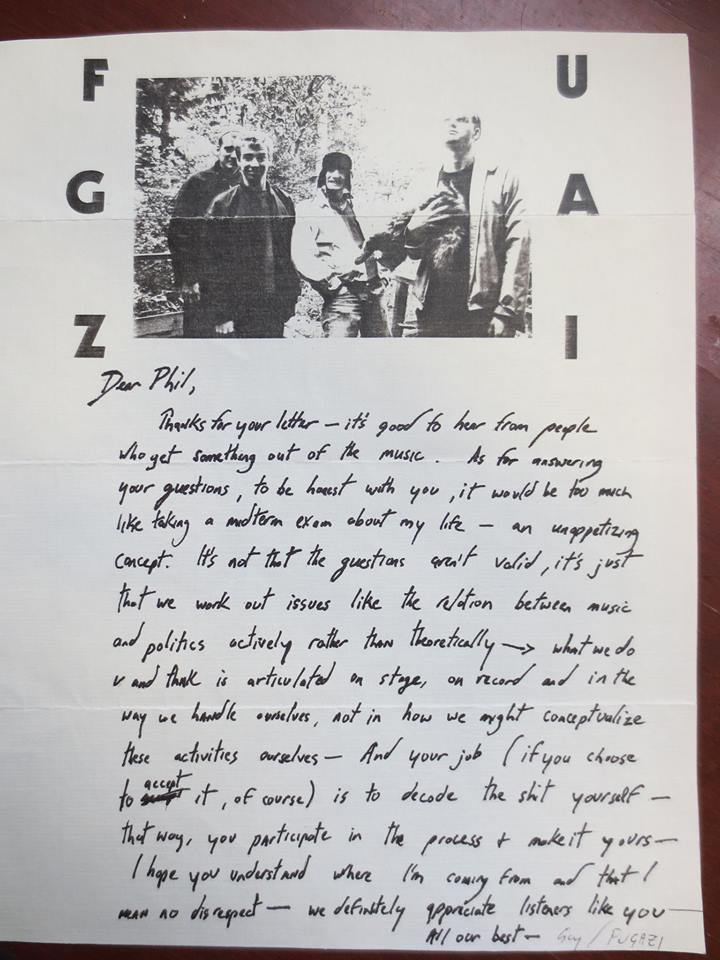 F U
G A
Z I
Dear Phil,
Thanks for your letter — it's good to hear from people
who get something out of the music. As for answering
your questions, to be honest with you, it would be too much
like taking a midterm exam about my life — an unappetizing
concept. It's not that the questions aren't valid, it's just
that we work out issues like the relation between music
and politics actively rather than theoretically —> what we do
and think is articulated on stage, on record and in the
way we handle ourselves, not in how we might conceptualize
these activities ourselves — And your job (if you choose
to accept it, of course) is to decode the shit yourself —
that way, you participate in the process + make it yours —
I hope you understand where I'm coming from and that I
mean no disrespect — we definitely appreciate listeners like you —
All our best — Guy / FUGAZI